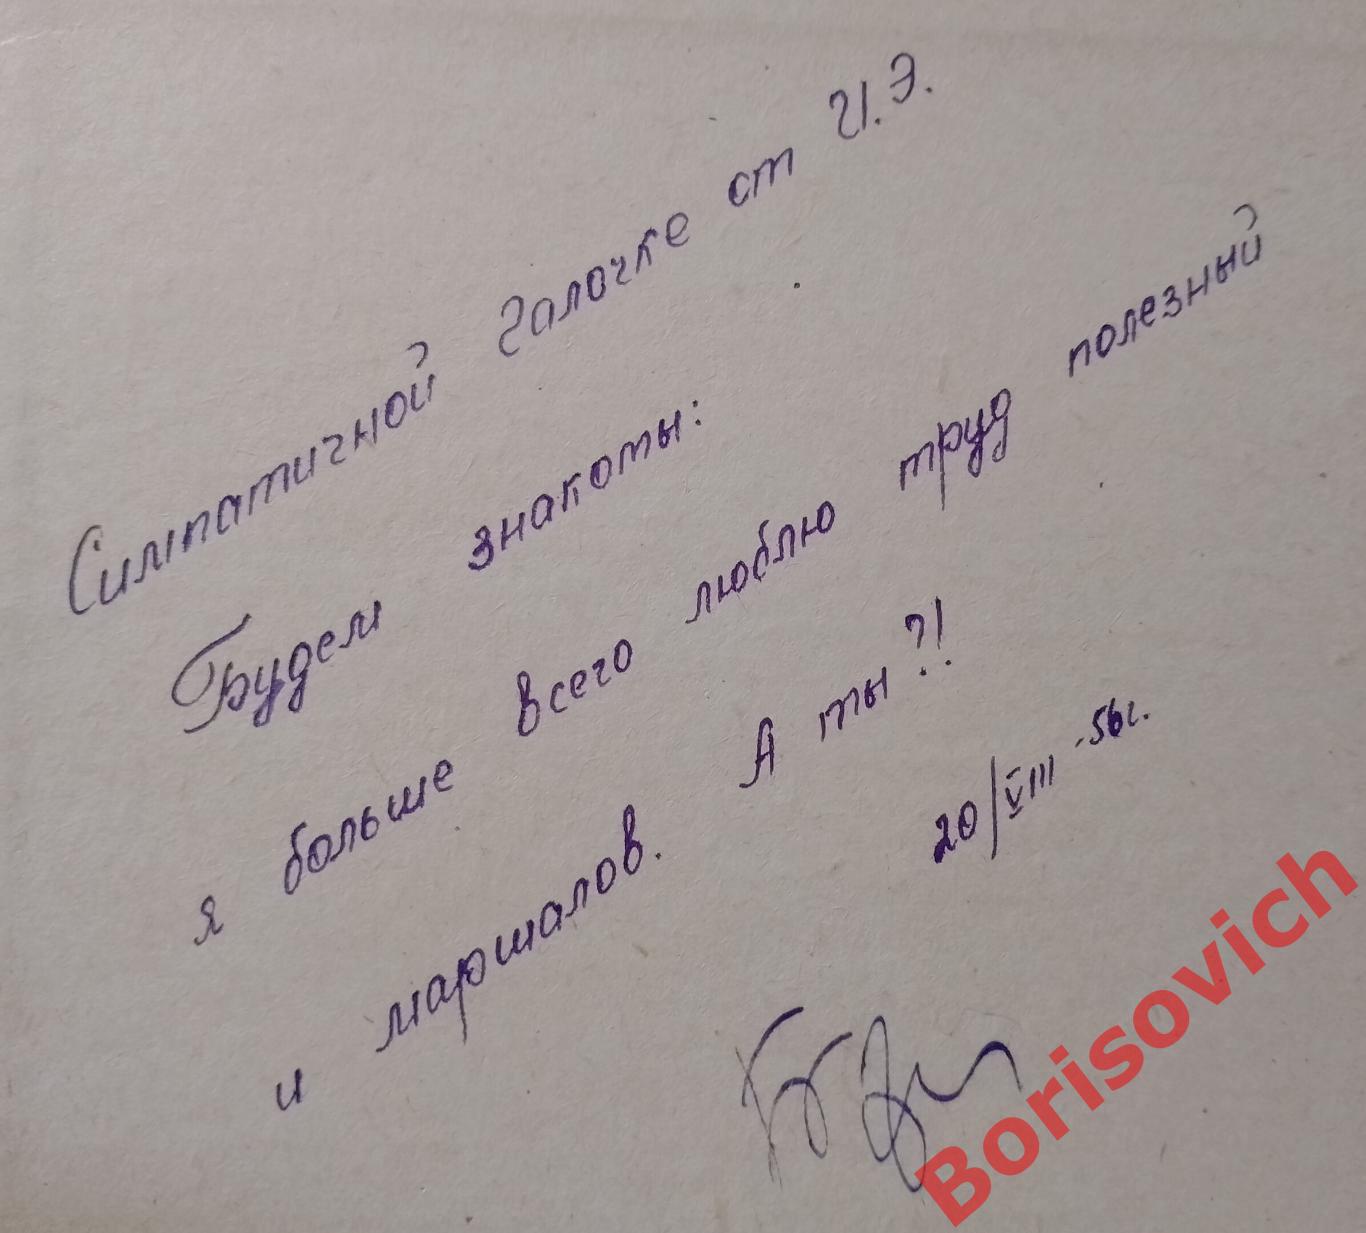 Симпатичной Галочке от И.Э.
Будем знакомы:
я больше всего люблю труд полезный
и маршалов. А ты?!
20/VIII-56г.
Borisovich